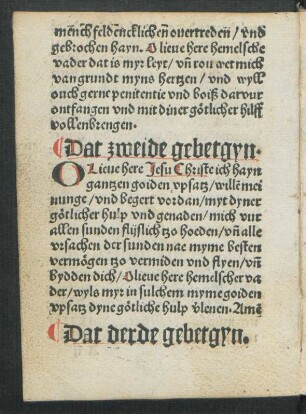 mēnch feldencklichen ouertredeñ/ vnd
gebrochen hayn. O lieue here hemelsche
vader dat is myr leyt/ vñ rou wet mich
van grundt myns hertzen/ vnd wyll
ouch gerne penitentie vnd boiß darvur
ontfangen vnd mit diner götlicher hilff
vollenbrengen.
Dat zweide gebetgyn.
O Lieue here Jesu Christe ich hayn
gantzen goiden vpsatz/ wille mei
nunge/ vnd begert vordan/ myt dyner
götlicher hulp vnd genaden/ mich vur
allen sunden flyslich tzo hoeden/ vñ alle
vrsachen der sunden nae myme besten
vermögen tzo vermiden vnd flyen/ vñ
bydden dich/ O lieue here hemelscher va
der/ wyls myr in sulchem myme goiden
vpsatz dyne götliche hulp vlenen. Amē
Dat derde gebetgyn.